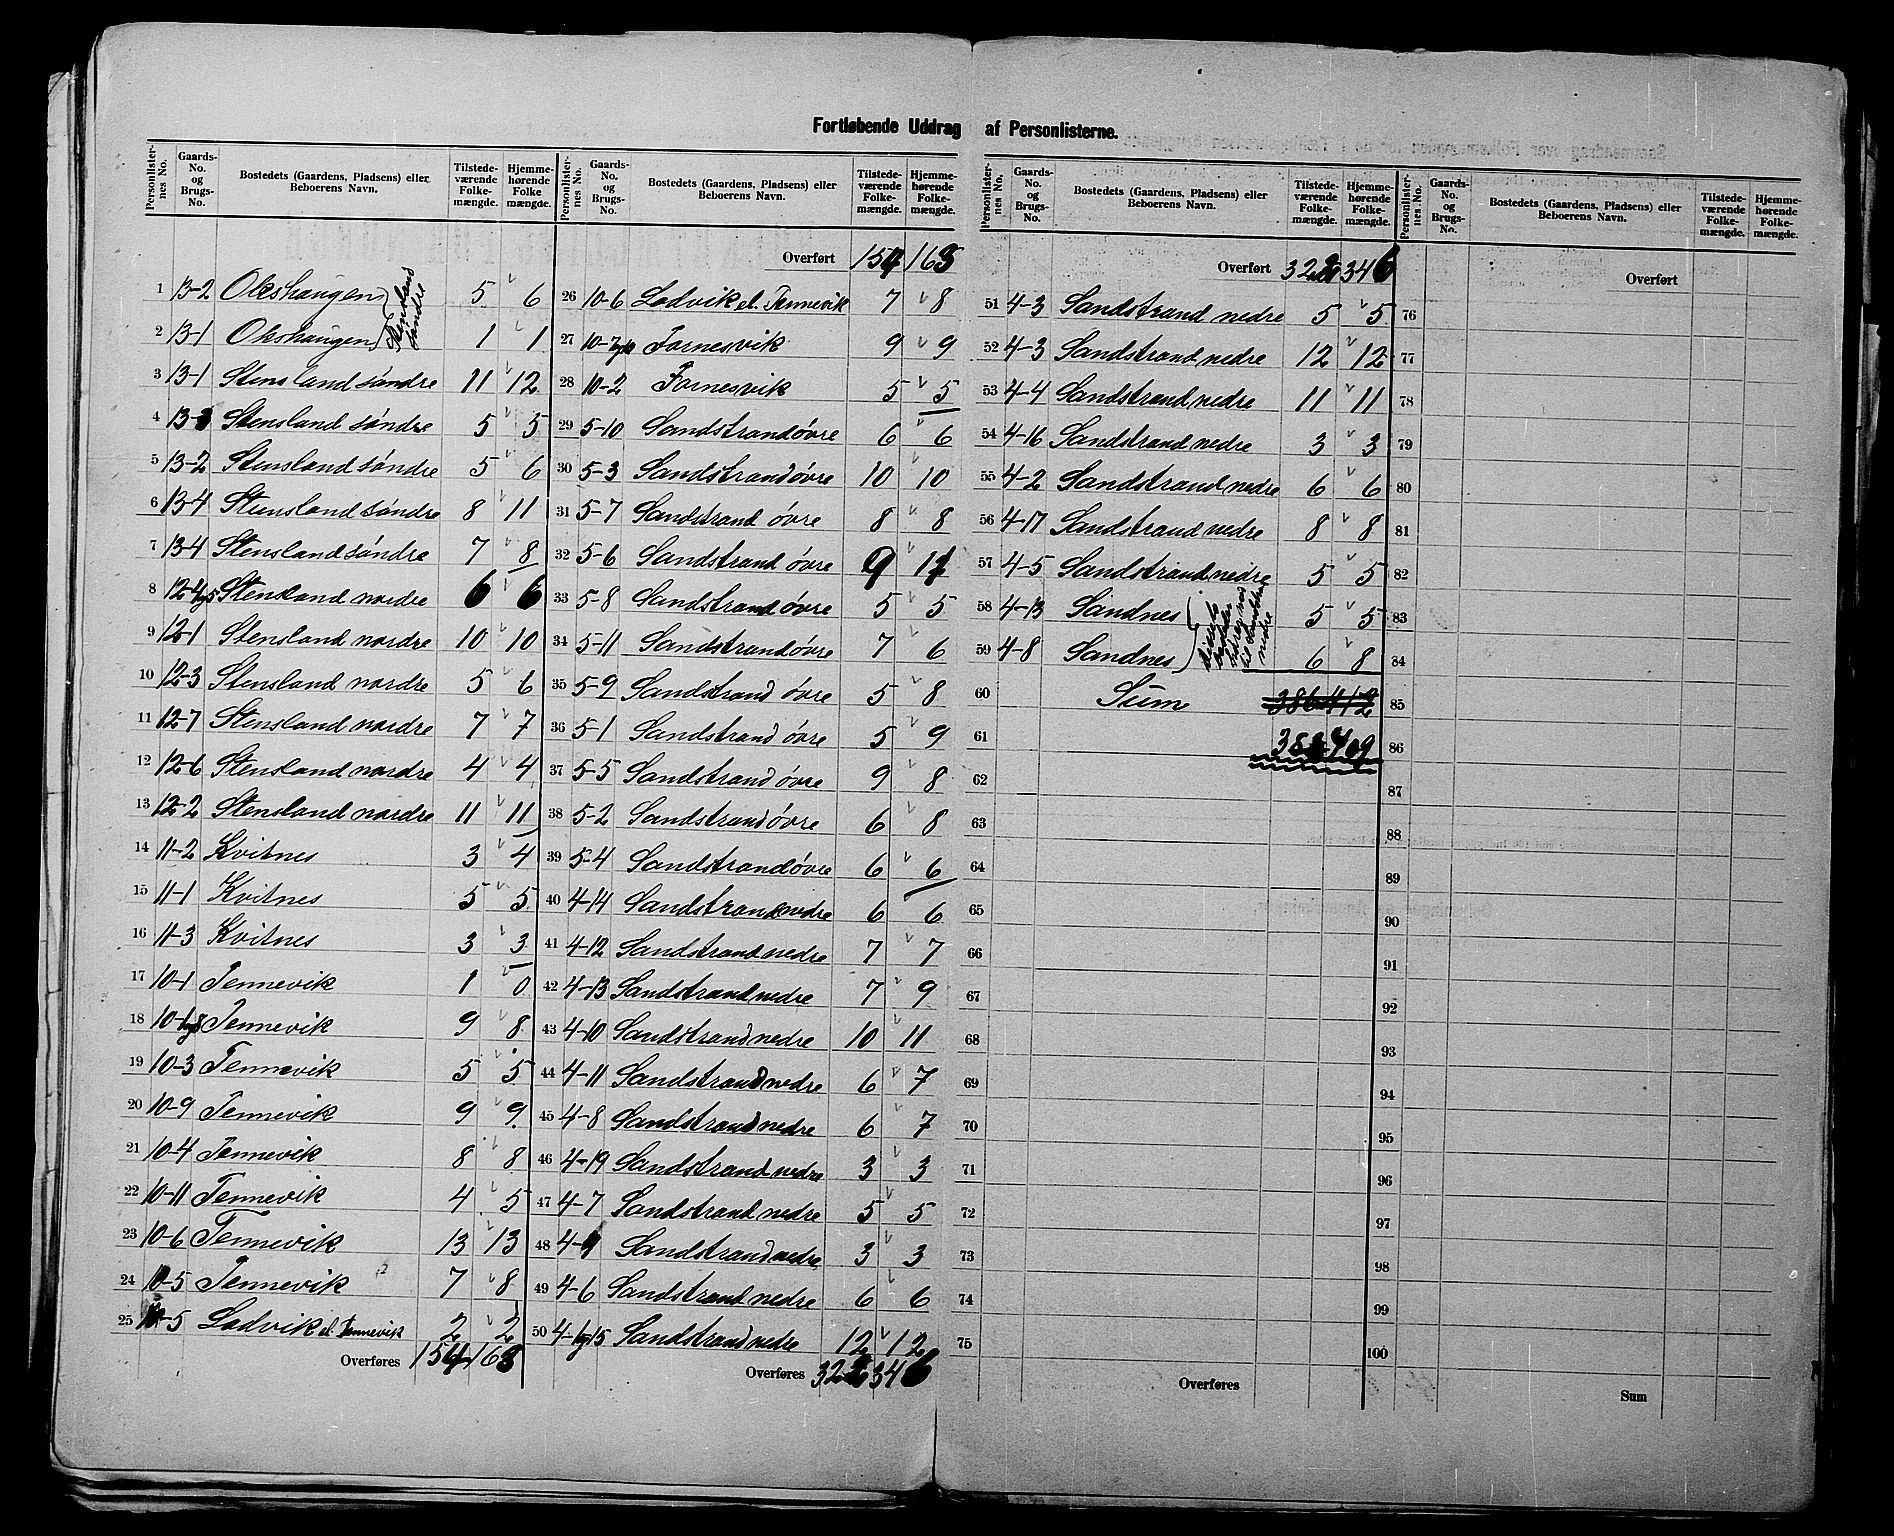 Fortløbende Uddrag af Personlisterne.
Personlisternes No. Gaards-No. og Brugs-No. Bostedets (Gaardens, Pladsens) eller Beboerens Navn. Tilstedeværende Folkemængde. Hjemmehørende Folkemængde.
1 13-2 Okshaugen 5 6
2 13-1 Okshaugen 1 1
Stensland søndre
3 13-1 Stensland søndre 11 12
4 13-3 Stensland søndre 5 5
5 13-2 Stensland søndre 5 6
6 13-4 Stensland søndre 8 11
7 13-4 Stensland søndre 7 8
8 12-4 og 5 Stensland nordre 6 6
9 12-1 Stensland nordre 10 10
10 12-3 Stensland nordre 5 6
11 12-7 Stensland nordre 7 7
12 12-6 Stensland nordre 4 4
13 12-2 Stensland nordre 11 11
14 11-2 Kvitnes 3 4
15 11-1 Kvitnes 5 5
16 11-3 Kvitnes 3 3
17 10-1 Tennevik 1 0
18 10-1 og 8 Tennevik 9 8
19 10-3 Tennevik 5 5
20 10-9 Tennevik 9 9
21 10-4 Tennevik 8 8
22 10-11 Tennevik 4 5
23 10-6 Tennevik 13 13
24 10-5 Tennevik 7 8
25 10-5 Lodvik el. Tennevik 2 2
Overføres 154 163
Personlisternes No. Gaards-No. og Brugs-No. Bostedets (Gaardens, Pladsens) eller Beboerens Navn. Tilstedeværende Folkemængde. Hjemmehørende Folkemængde.
Overført 154 163
26 10-6 Lodvik el. Tennevik 7 8
27 10-7 og 10 Fornesvik 9 9
28 10-2 Fornesvik 5 5
29 5-10 Sandstrand øvre 6 6
30 5-3 Sandstrand øvre 10 10
31 5-7 Sandstrand øvre 8 8
32 5-6 Sandstrand øvre 9 11
33 5-8 Sandstrand øvre 5 5
34 5-11 Sandstrand øvre 7 6
35 5-9 Sandstrand øvre 5 8
36 5-1 Sandstrand øvre 5 9
37 5-5 Sandstrand øvre 9 8
38 5-2 Sandstrand øvre 6 8
39 5-4 Sandstrand øvre 6 6
40 4-14 Sandstrand nedre 6 6
41 4-12 Sandstrand nedre 7 7
42 4-13 Sandstrand nedre 7 9
43 4-10 Sandstrand nedre 10 11
44 4-11 Sandstrand nedre 6 7
45 4-8 Sandstrand nedre 6 7
46 4-19 Sandstrand nedre 3 3
47 4-7 Sandstrand nedre 5 5
48 4-9 Sandstrand nedre 3 3
49 4-6 Sandstrand nedre 6 6
50 4-1 og 15 Sandstrand nedre 12 12
Overføres 322 346
Personlisternes No. Gaards-No. og Brugs-No. Bostedets (Gaardens, Pladsens) eller Beboerens Navn. Tilstedeværende Folkemængde. Hjemmehørende Folkemængde.
Overført 322 346
51 4-3 Sandstrand nedre 5 5
52 4-3 Sandstrand nedre 12 12
53 4-4 Sandstrand nedre 11 11
54 4-16 Sandstrand nedre 3 3
55 4-2 Sandstrand nedre 6 6
56 4-17 Sandstrand nedre 8 8
57 4-5 Sandstrand nedre 5 5
58 4-13 Sandnes 5 5
59 4-8 Sandnes 6 8
60 Sum 386 412
61 383 409
62
63
64
65
66
67
68
69
70
71
72
73
74
75
Overføres
Personlisternes No. Gaards-No. og Brugs-No. Bostedets (Gaardens, Pladsens) eller Beboerens Navn. Tilstedeværende Folkemængde. Hjemmehørende Folkemængde.
Overført
76
77
78
79
80
81
82
83
84
85
86
87
88
89
90
91
92
93
94
95
96
97
98
99
100
Sum